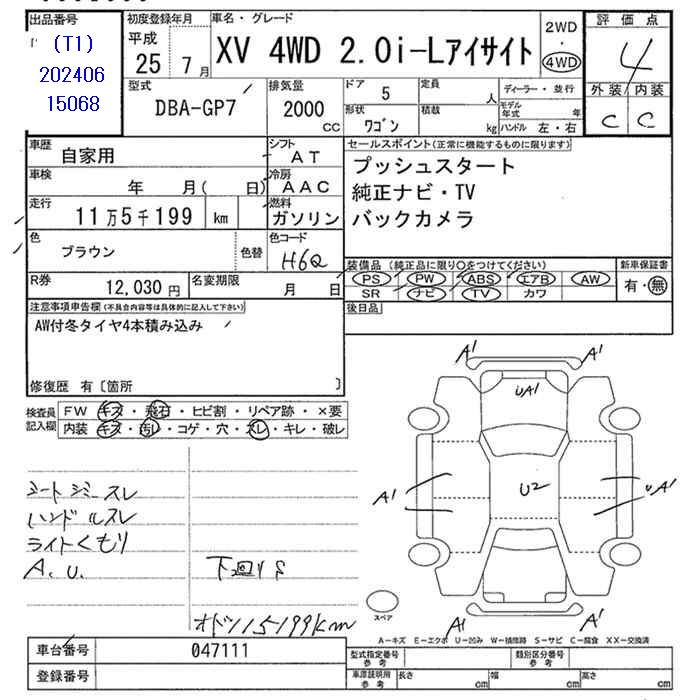 出品番号
(T1)
202406
15068
初度登録年月
平成
25 7月
車名・グレード
XV 4WD 2.0i-Lアイサイト
2WD
・
4WD
評価点
4
外装 内装
C C
型式
DBA-GP7
排気量
2000
CC
ドア 5
形状
ワゴン
定員
人
積載
kg
ディーラー・並行
モデル年式 年
ハンドル 左・右
車歴
自家用
シフト
AT
車検
年 月( 日)
冷房
AAC
走行
11万5千199 km
燃料
ガソリン
色
ブラウン
色替
色コード
H6Q
R券
12,030円
名変期限
月 日
セールスポイント(正常に機能するものに限ります)
プッシュスタート
純正ナビ・TV
バックカメラ
装備品 (純正品に限り○をつけてください)
PS PW ABS エアB AW
SR ナビ TV カワ
新車保証書
有・無
後日品
注意事項申告欄(不具合内容等は具体的に記入して下さい)
AW付冬タイヤ4本積み込み
修復歴 有〔箇所 〕
検査員
記入欄
FW キズ・飛石・ヒビ割・リペア跡・×要
内装 キズ・汚レ・コゲ・穴・スレ・キレ・破レ
シートシミスレ
ハンドルスレ
ライトくもり
A.U.
下回りS
オドメ115199km
A1 A1
UA1
A1 U2 UA1
A1 A1
スペア
A-キズ E-エクボ U-凹み W-補修跡 S-サビ C-腐食 XX-交換済
車台番号 047111
登録番号
型式指定番号
参考
類別区分番号
参考
車庫証明用
参考
長さ cm 幅 cm 高さ cm